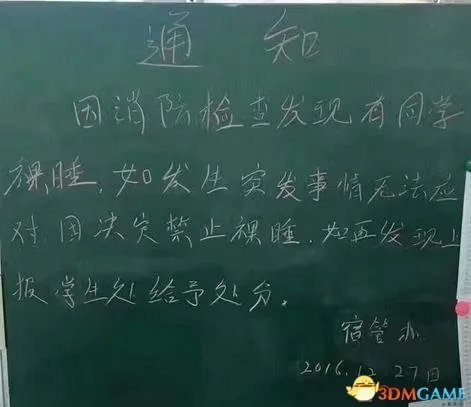 通 知
因消防检查发现有同学
裸睡，如发生突发事情无法应
对因决定禁止裸睡．如再发现上
报学生处给予处分。
宿管办
2016.12.27日
3DMGAME